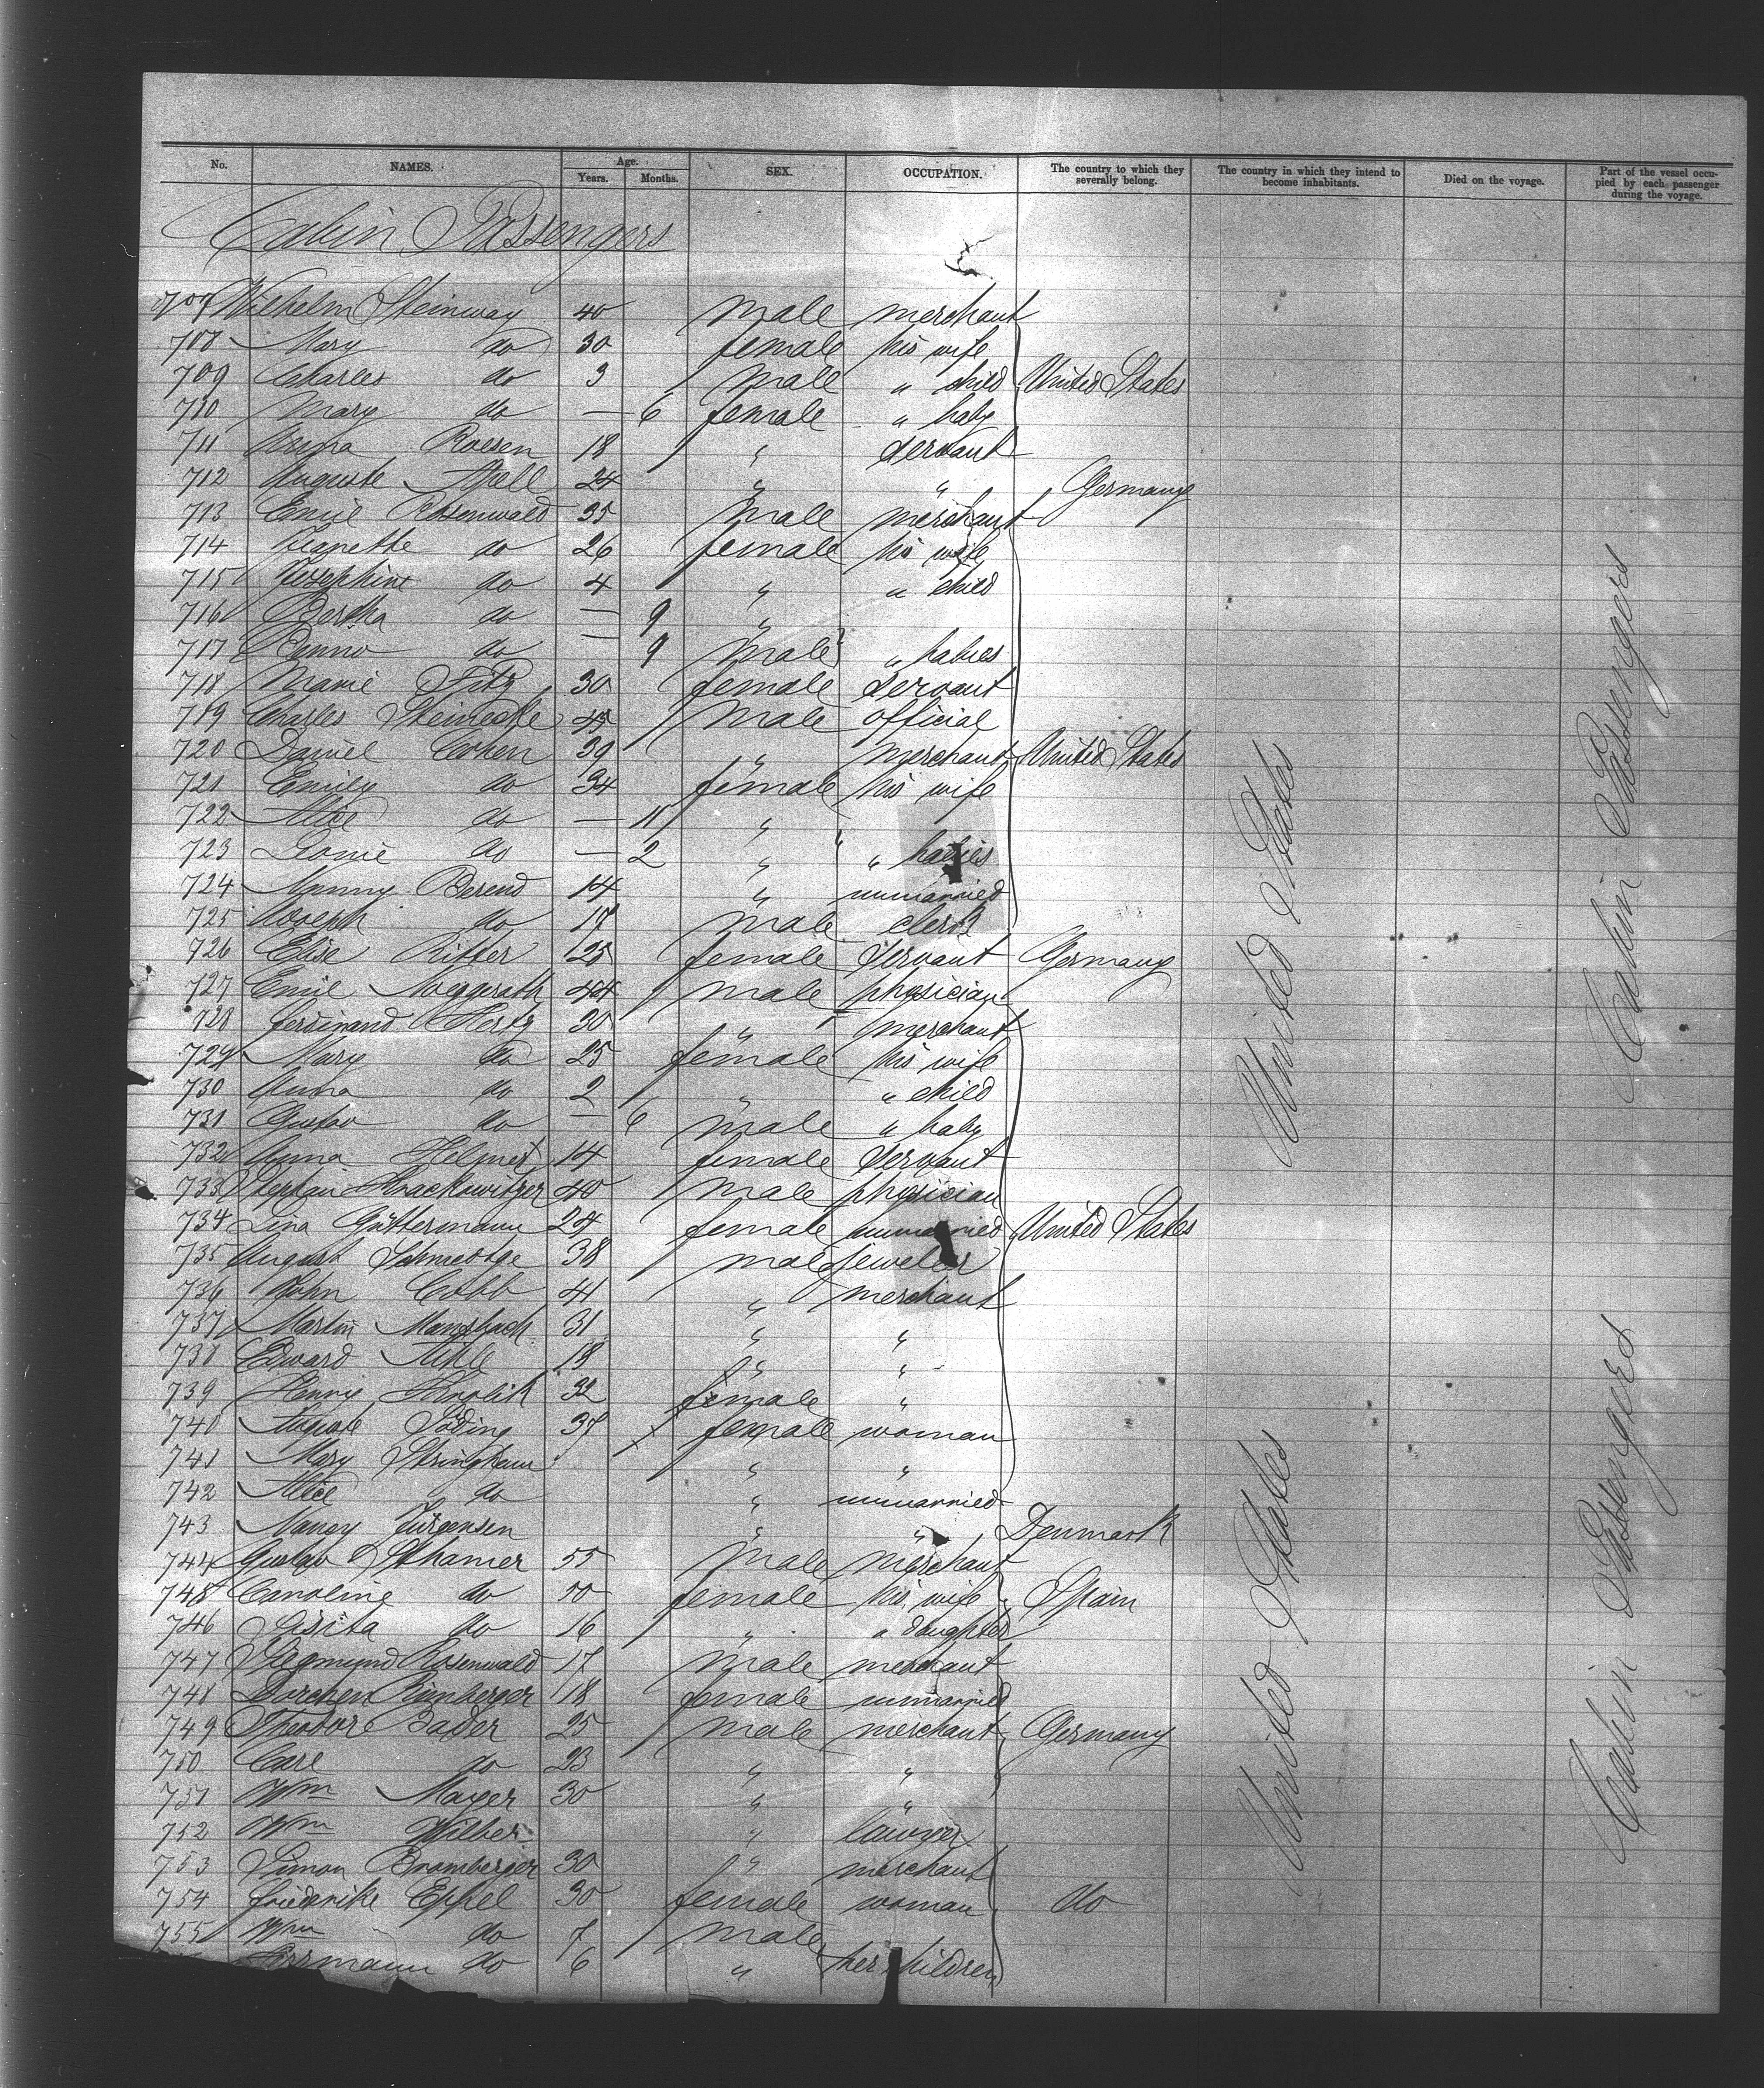 No. NAMES. Age. Years. Months. SEX. OCCUPATION. The country to which they severally belong. The country in which they intend to become inhabitants. Died on the voyage. Part of the vessel occupied by each passenger during the voyage.
Cabin Passengers
707 Wilhelm Steinway 40 male merchant
708 Mary do 30 female his wife
709 Charles do 3 male " child United States
710 Mary do — 6 female " baby
711 Anna Roesen 18 " servant
712 Auguste Apell 24 " " Germany
713 Emil Rosenwald 35 male merchant
714 Jeanette do 26 female his wife
715 Josephine do 4 " " child
716 Bertha do — 9 "
717 Benno do — 9 male " babies
718 Marie Fitz 30 female servant
719 Charles Steinecke 45 male official
720 Daniel Cohen 39 " merchant United States
721 Emily do 34 female his wife
722 Alice do — 11 "
723 Leonie do — 2 " " babies
724 Nanny Berend 14 " unmarried
725 Adolph do 17 male clerk
726 Elise Ritter 25 female servant Germany
727 Emil Noeggerath 44 male physician
728 Ferdinand Hertz 30 " merchant
729 Mary do 25 female his wife
730 Anna do 2 " " child
731 Gustav do — 6 male " baby
732 Anna 14 female servant
733 Krackowitzer 40 male physician
734 Lina Güttermann 24 female unmarried United States
735 August Schmedtge 38 male jeweler
736 John Cobb 41 " merchant
737 Martin Mansbach 31 " "
738 Edward 19 " "
739 Henry 32 female "
740 Auguste Söding 37 female woman
741 Mary Stringham " "
742 Alice do " unmarried
743 Nancy Jürgensen " " Denmark
744 Gustav 55 male merchant
745 Caroline do 50 female his wife Spain
746 Lisita do 16 " " daughter
747 Siegmund Rosenwald 17 male merchant
748 Dorchen Rimberger 18 female unmarried
749 Theodore Bader 25 male merchant Germany
750 Carl do 23 " "
751 Wm Mayer 30 " "
752 Wm Wilber " lawyer
753 Simon Bromberger 30 " merchant
754 Friederike Eppel 30 female woman do
755 Wm do 7 male
Herrmann do 6 " her children
United States
Cabin Passengers
United States
Cabin Passengers